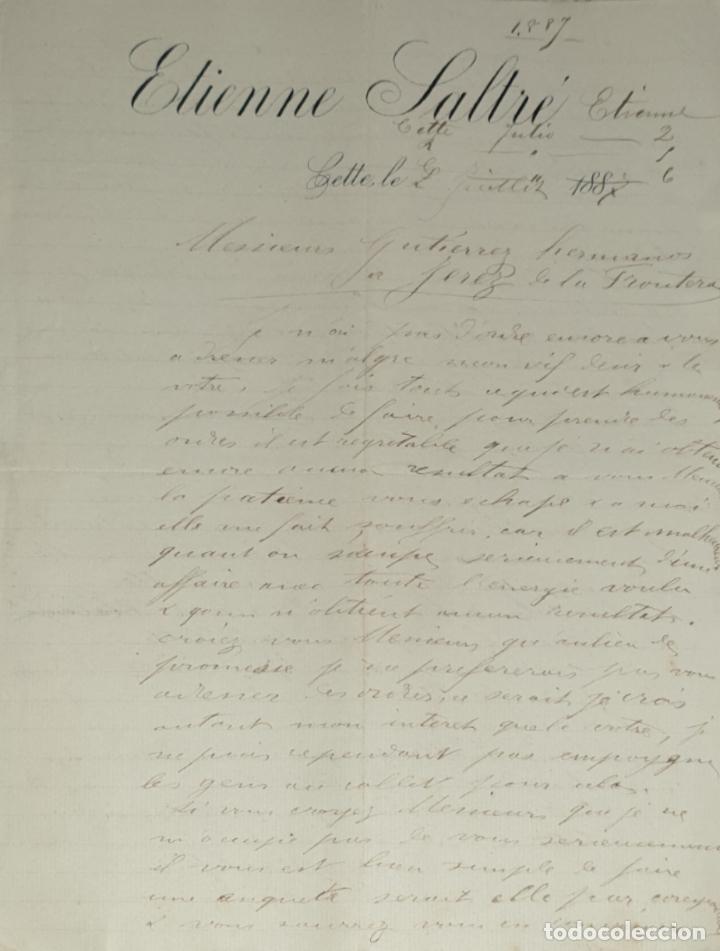 1887
Etienne Saltré
Etienne
Cette Julio 2
Cette, le 2 Juillet 1887
6
Messieurs Gutierrez hermanos
a Jerez de la Frontera
Je n'ai pas d'ordre encore a vous
adresser malgre mon vif desir & le
votre, Je fais tout
possible de faire pour prendre des
ordres il est regretable que je n'ai
encore aucun resultat a vous
la patience vous echape & a moi
elle me fait souffrir, car il est
quant on s'ocupe serieusement d'une
affaire avec toute l'energie voulu
& qon n'obtient aucun resultat.
croiez vous Messieurs qu'aulieu de
promesse je ne prefererois pas vous
adresser des ordres, ce serait je crois
autant mon interet que le votre, je
ne puis cependant pas
les gens au collet pour cela.
Si vous croyez Messieurs que je ne
m'ocupe pas de vous serieusement
il vous est bien simple de faire
une anquete serait elle par
& vous
todocoleccion.net